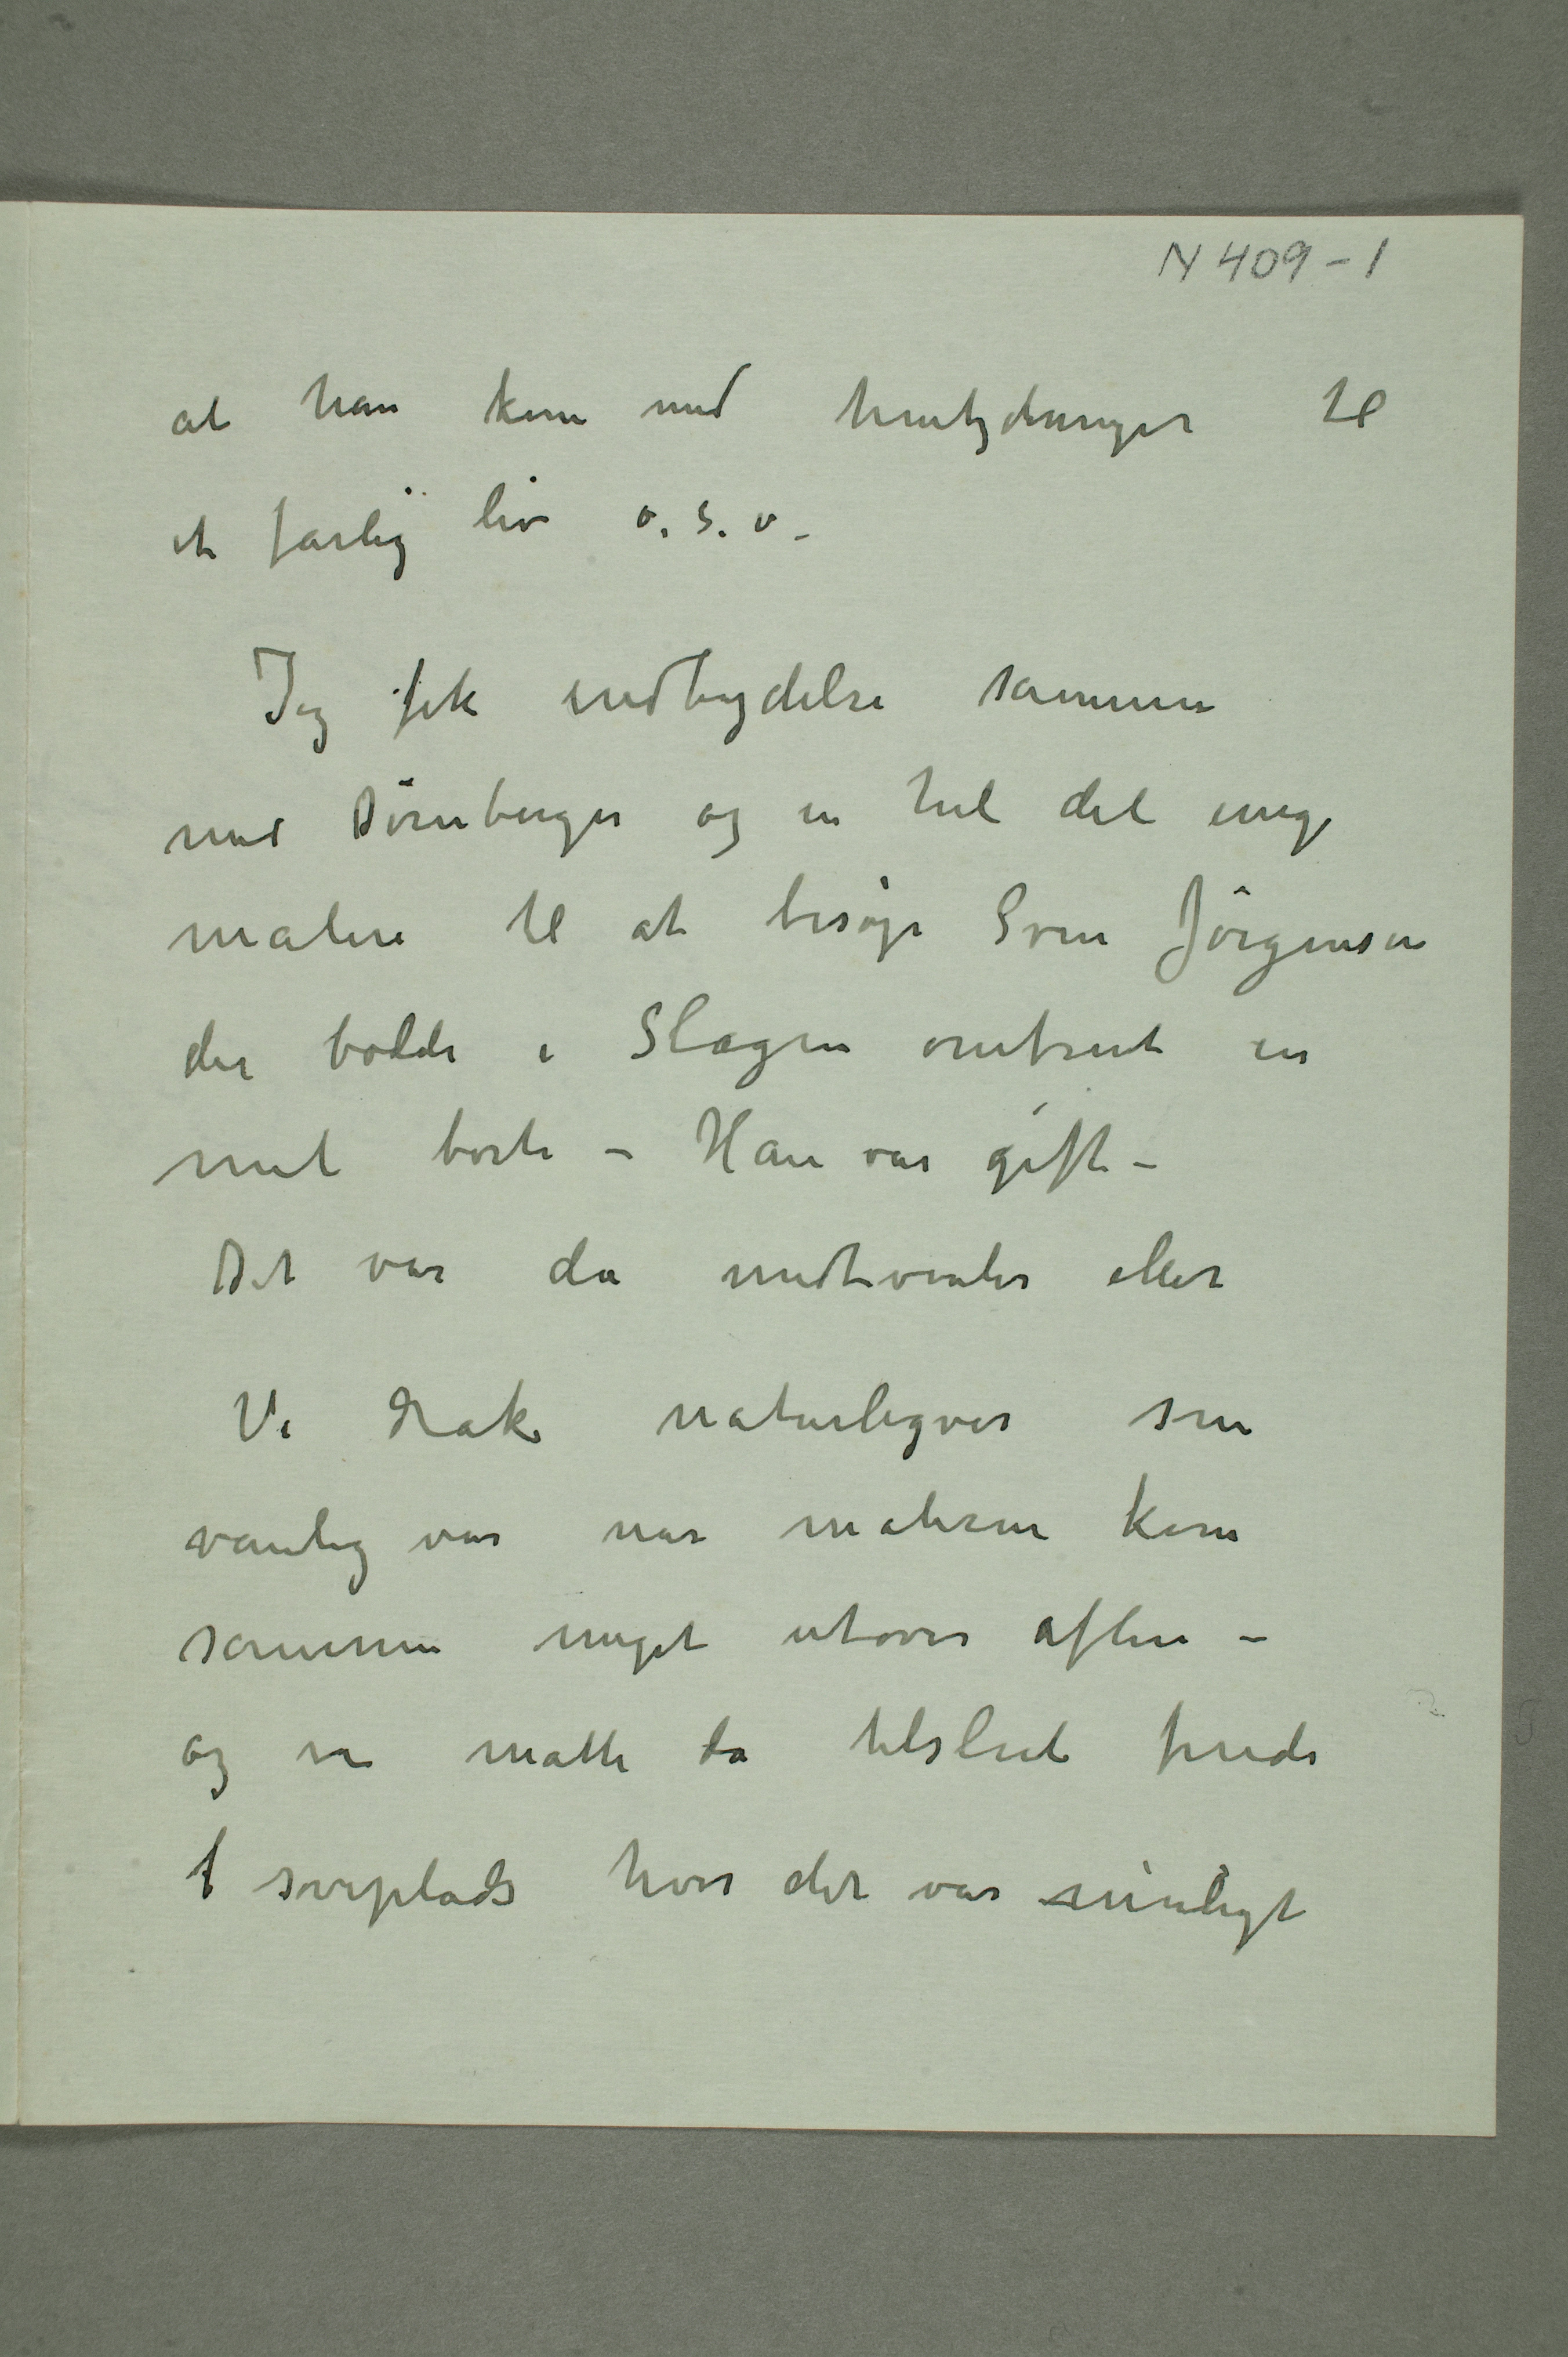 N 409-1
at han kom med hentydninger til
et farlig liv o. s. v.
Jeg fik indbydelse sammen
med Dörnberger og en hel del unge
malere til at besøge Sven Jörgensen
der bodde i Slagen omtrent en
mil borte – Han var gift –
Det var da midtvinter eller
Vi drak naturligvis som
vanlig var nar malerne kom
sammen meget utover aften –
og vi måtte da tilslut finde
soveplads hvor det var muligt